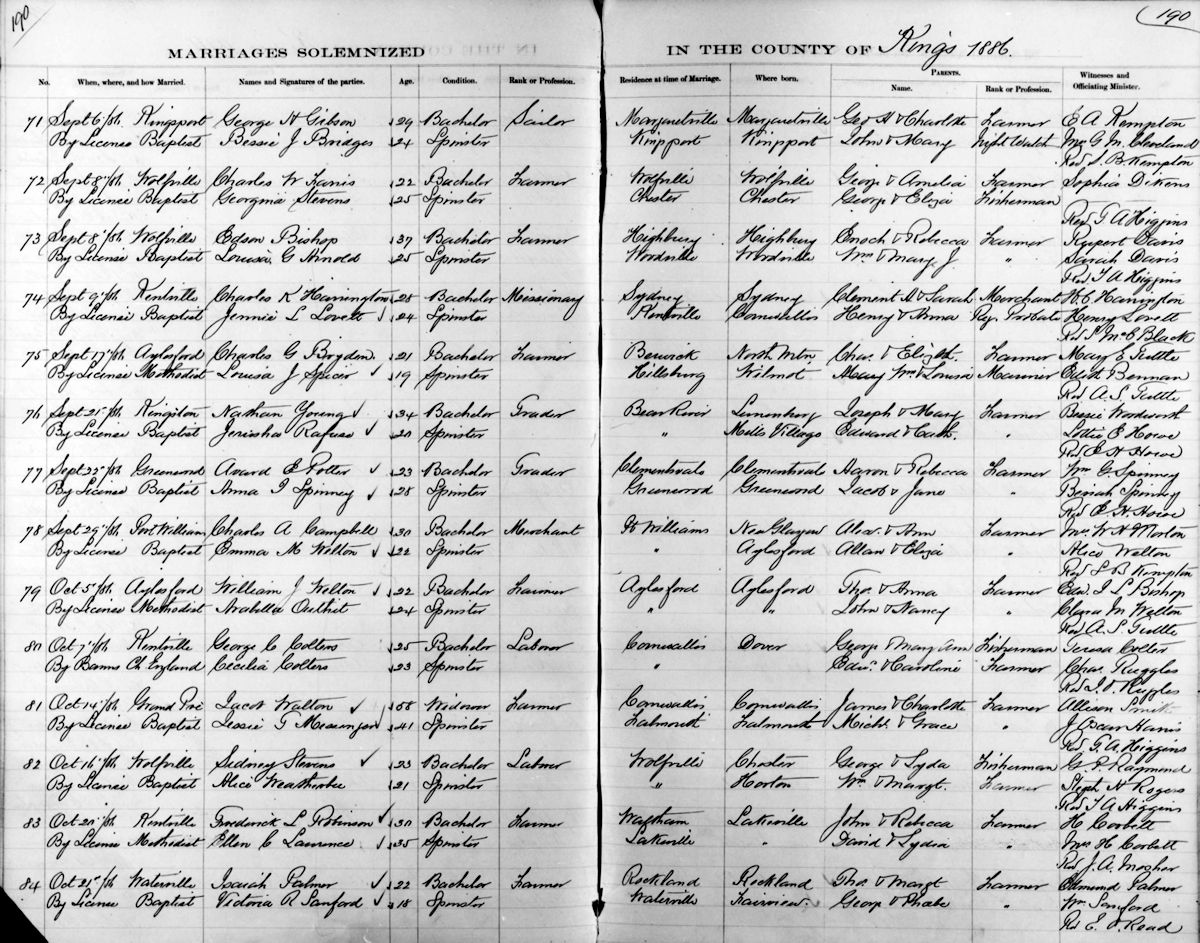 190
190
MARRIAGES SOLEMNIZED IN THE COUNTY OF Kings 1886.
No. When, where, and how Married. Names and Signatures of the parties. Age. Condition. Rank or Profession. Residence at time of Marriage. Where born. PARENTS. Name. Rank or Profession. Witnesses and Officiating Minister.
71 Sept 6th Kingsport George H Gibson 29 Bachelor Sailor Margaretville Margaretville Geo H & Charlotte Farmer E A Kempton
By License Baptist Bessie J Bridges 24 Spinster Kingsport Kingsport John & Mary Night Watch Mrs G M Cleveland
Rev S. B. Kempton
72 Sept 8th Wolfville Charles W Farris 22 Bachelor Farmer Wolfville Wolfville George & Amelia Farmer Sophia Dikens
By License Baptist Georgina Stevens 25 Spinster Chester Chester George & Eliza Fisherman
Rev T A Higgins
73 Sept 8th Wolfville Edson Bishop 37 Bachelor Farmer Highbury Highbury Enoch & Rebecca Farmer Rupert Davis
By License Baptist Louisa G Arnold 25 Spinster Woodville Woodville Wm & Mary J. " Sarah Davis
Rev T A Higgins
74 Sept 9th Kentville Charles K Harrington 28 Bachelor Missionary Sydney Sydney Clement H & Sarah Merchant Harrington
By License Baptist Jennie L Lovett 24 Spinster Kentville Cornwallis Henry & Anna Reg. Probate Henry Lovett
Rev S McC Black
75 Sept 17th Aylesford Charles G Bryden 21 Bachelor Farmer Berwick North Mtn Chas. & Elizth. Farmer Mary E Tuttle
By License Methodist Louisa J Spicer 19 Spinster Hillsburg Wilmot Mary Wm & Louisa Mariner Edith Bennan
Rev A. S. Tuttle
76 Sept 21st Kingston Nathan Young 34 Bachelor Trader Bear River Lunenburg Joseph & Mary Farmer Bessie Woodworth
By License Baptist Jerusha Rafuse 20 Spinster " Mills Village Edward & Cath. " Lottie E Howe
Rev E H Howe
77 Sept 22nd Greenwood Avard E Potter 23 Bachelor Trader Clementsvale Clementsvale Aaron & Rebecca Farmer Wm G. Spinney
By License Baptist Anna I Spinney 28 Spinster Greenwood Greenwood Jacob & Jane " Beriah Spinney
Rev E H Howe
78 Sept 29th Port Williams Charles A Campbell 30 Bachelor Merchant Pt Williams New Glasgow Alex. & Ann Farmer Mrs. W H Morton
By License Baptist Emma M Welton 22 Spinster " Aylesford Allan & Eliza " Alice Welton
Rev S B Kempton
79 Oct 5th Aylesford William J Welton 22 Bachelor Farmer Aylesford Aylesford Tho. & Anna Farmer Edw. I L Bishop
By License Methodist Arabella Outhit 24 Spinster " " John & Nancy " Clara M Welton
Rev A. S. Tuttle
80 Oct 7th Kentville George C Colters 25 Bachelor Laborer Cornwallis Dover George & Mary Ann Fisherman Teresa Colter
By Banns Ch England Cecilia Colters 23 Spinster " Edwd. & Caroline Farmer Chas. Ruggles
Rev J. O. Ruggles
81 Oct 14th Grand Pré Jacob Walton 58 Widower Farmer Cornwallis Cornwallis James & Charlotte Farmer Allison Smith
By License Baptist Lessie T Messinger 41 Spinster Falmouth Falmouth Michl. & Grace " J Oscar Harris
Rev T. A. Higgins
82 Oct 16th Wolfville Sidney Stevens 23 Bachelor Laborer Wolfville Chester George & Lyda Fisherman G. P. Raymond
By License Baptist Alice Weatherbee 21 Spinster " Horton Wm & Margt. Farmer Steph H Rogers
Rev T A Higgins
83 Oct 20th Kentville Frederick L Robinson 30 Bachelor Farmer Waltham Lakeville John & Rebecca Farmer H Corbett
By License Methodist Ellen C Lawrence 35 Spinster Lakeville " David & Lydia " Mrs H Corbett
Rev J. A. Mosher
84 Oct 21st Waterville Isaiah Palmer 22 Bachelor Farmer Rockland Rockland Tho. & Margt Farmer Edmund Palmer
By License Baptist Victoria R Sanford 18 Spinster Waterville Fairview George & Phebe " Wm Sanford
Rev E. O. Read